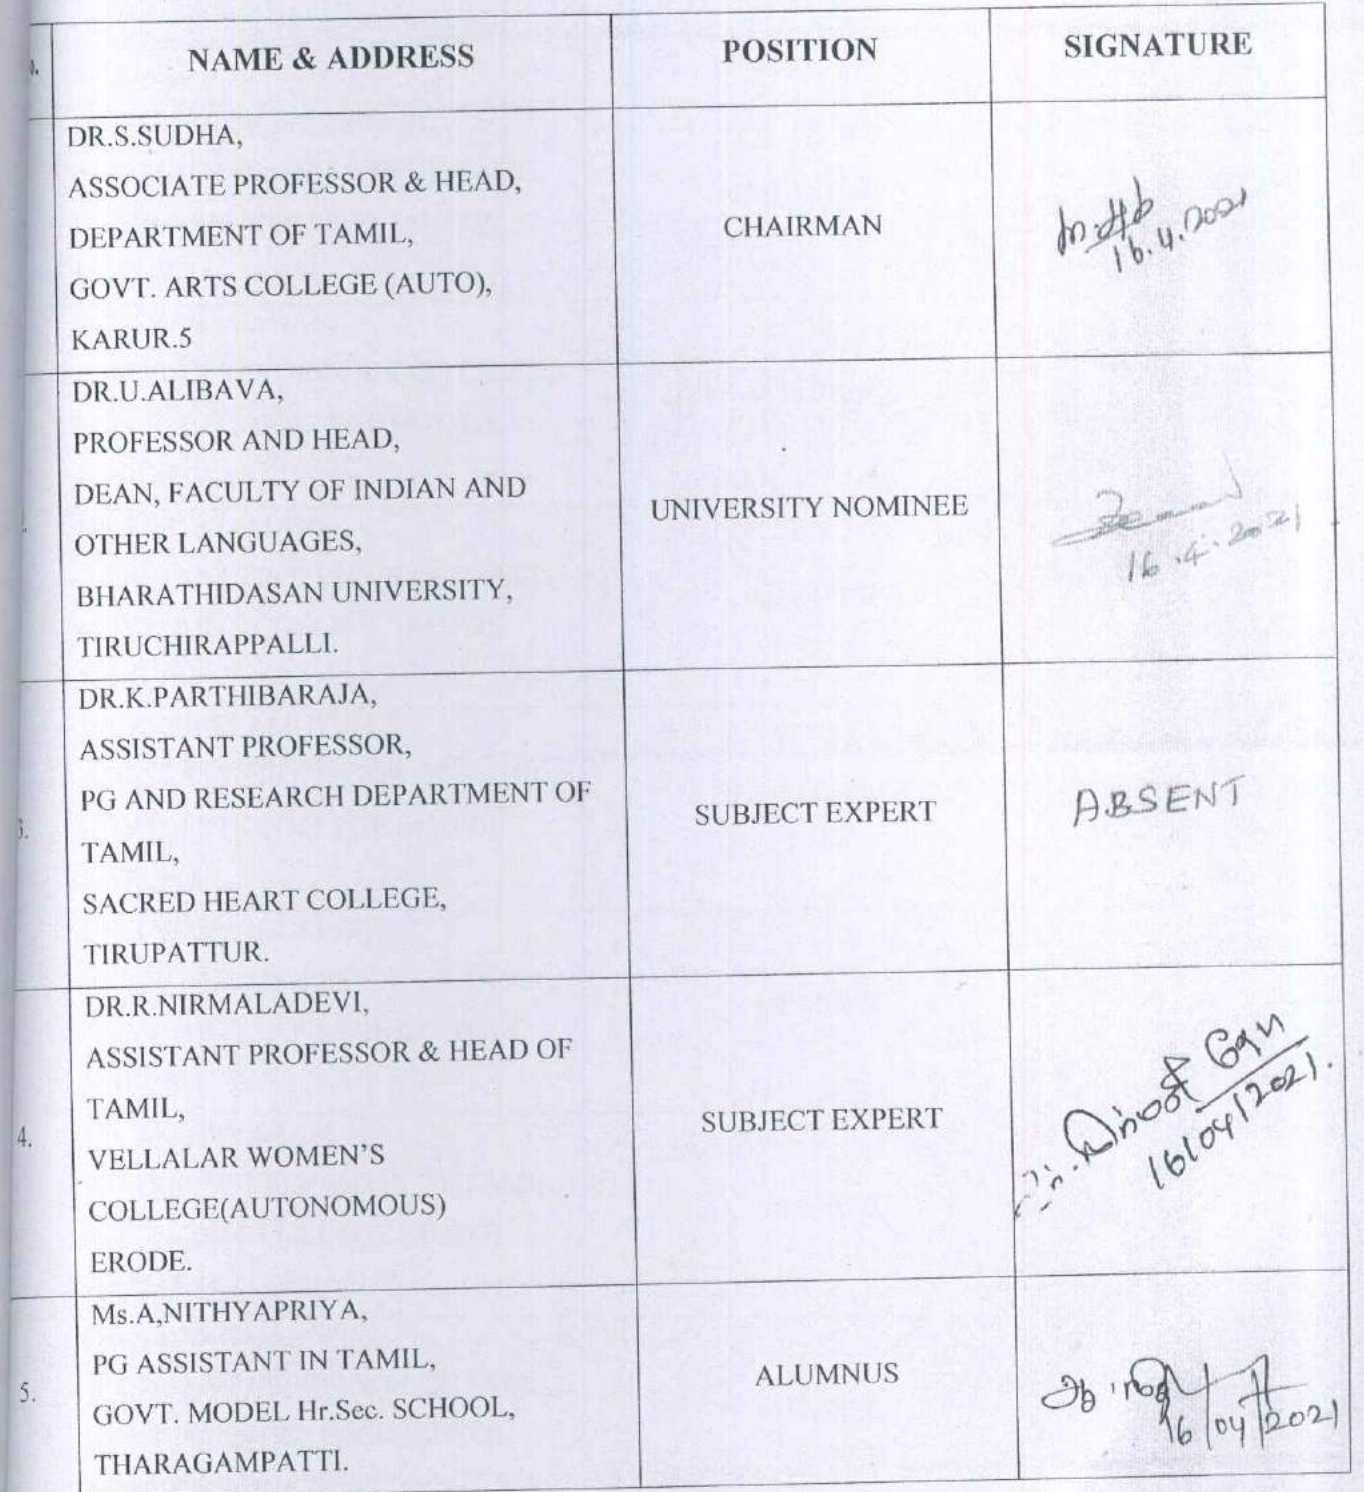 NAME & ADDRESS
POSITION
SIGNATURE
DR.S.SUDHA,
ASSOCIATE PROFESSOR & HEAD,
DEPARTMENT OF TAMIL,
GOVT. ARTS COLLEGE (AUTO),
KARUR.5
CHAIRMAN
16.4.2021
DR.U.ALIBAVA,
PROFESSOR AND HEAD,
DEAN, FACULTY OF INDIAN AND
OTHER LANGUAGES,
BHARATHIDASAN UNIVERSITY,
TIRUCHIRAPPALLI.
UNIVERSITY NOMINEE
16.4.2021
3.
DR.K.PARTHIBARAJA,
ASSISTANT PROFESSOR,
PG AND RESEARCH DEPARTMENT OF
TAMIL,
SACRED HEART COLLEGE,
TIRUPATTUR.
SUBJECT EXPERT
ABSENT
4.
DR.R.NIRMALADEVI,
ASSISTANT PROFESSOR & HEAD OF
TAMIL,
VELLALAR WOMEN'S
COLLEGE(AUTONOMOUS)
ERODE.
SUBJECT EXPERT
16/04/2021.
5.
Ms.A,NITHYAPRIYA,
PG ASSISTANT IN TAMIL,
GOVT. MODEL Hr.Sec. SCHOOL,
THARAGAMPATTI.
ALUMNUS
16/04/2021